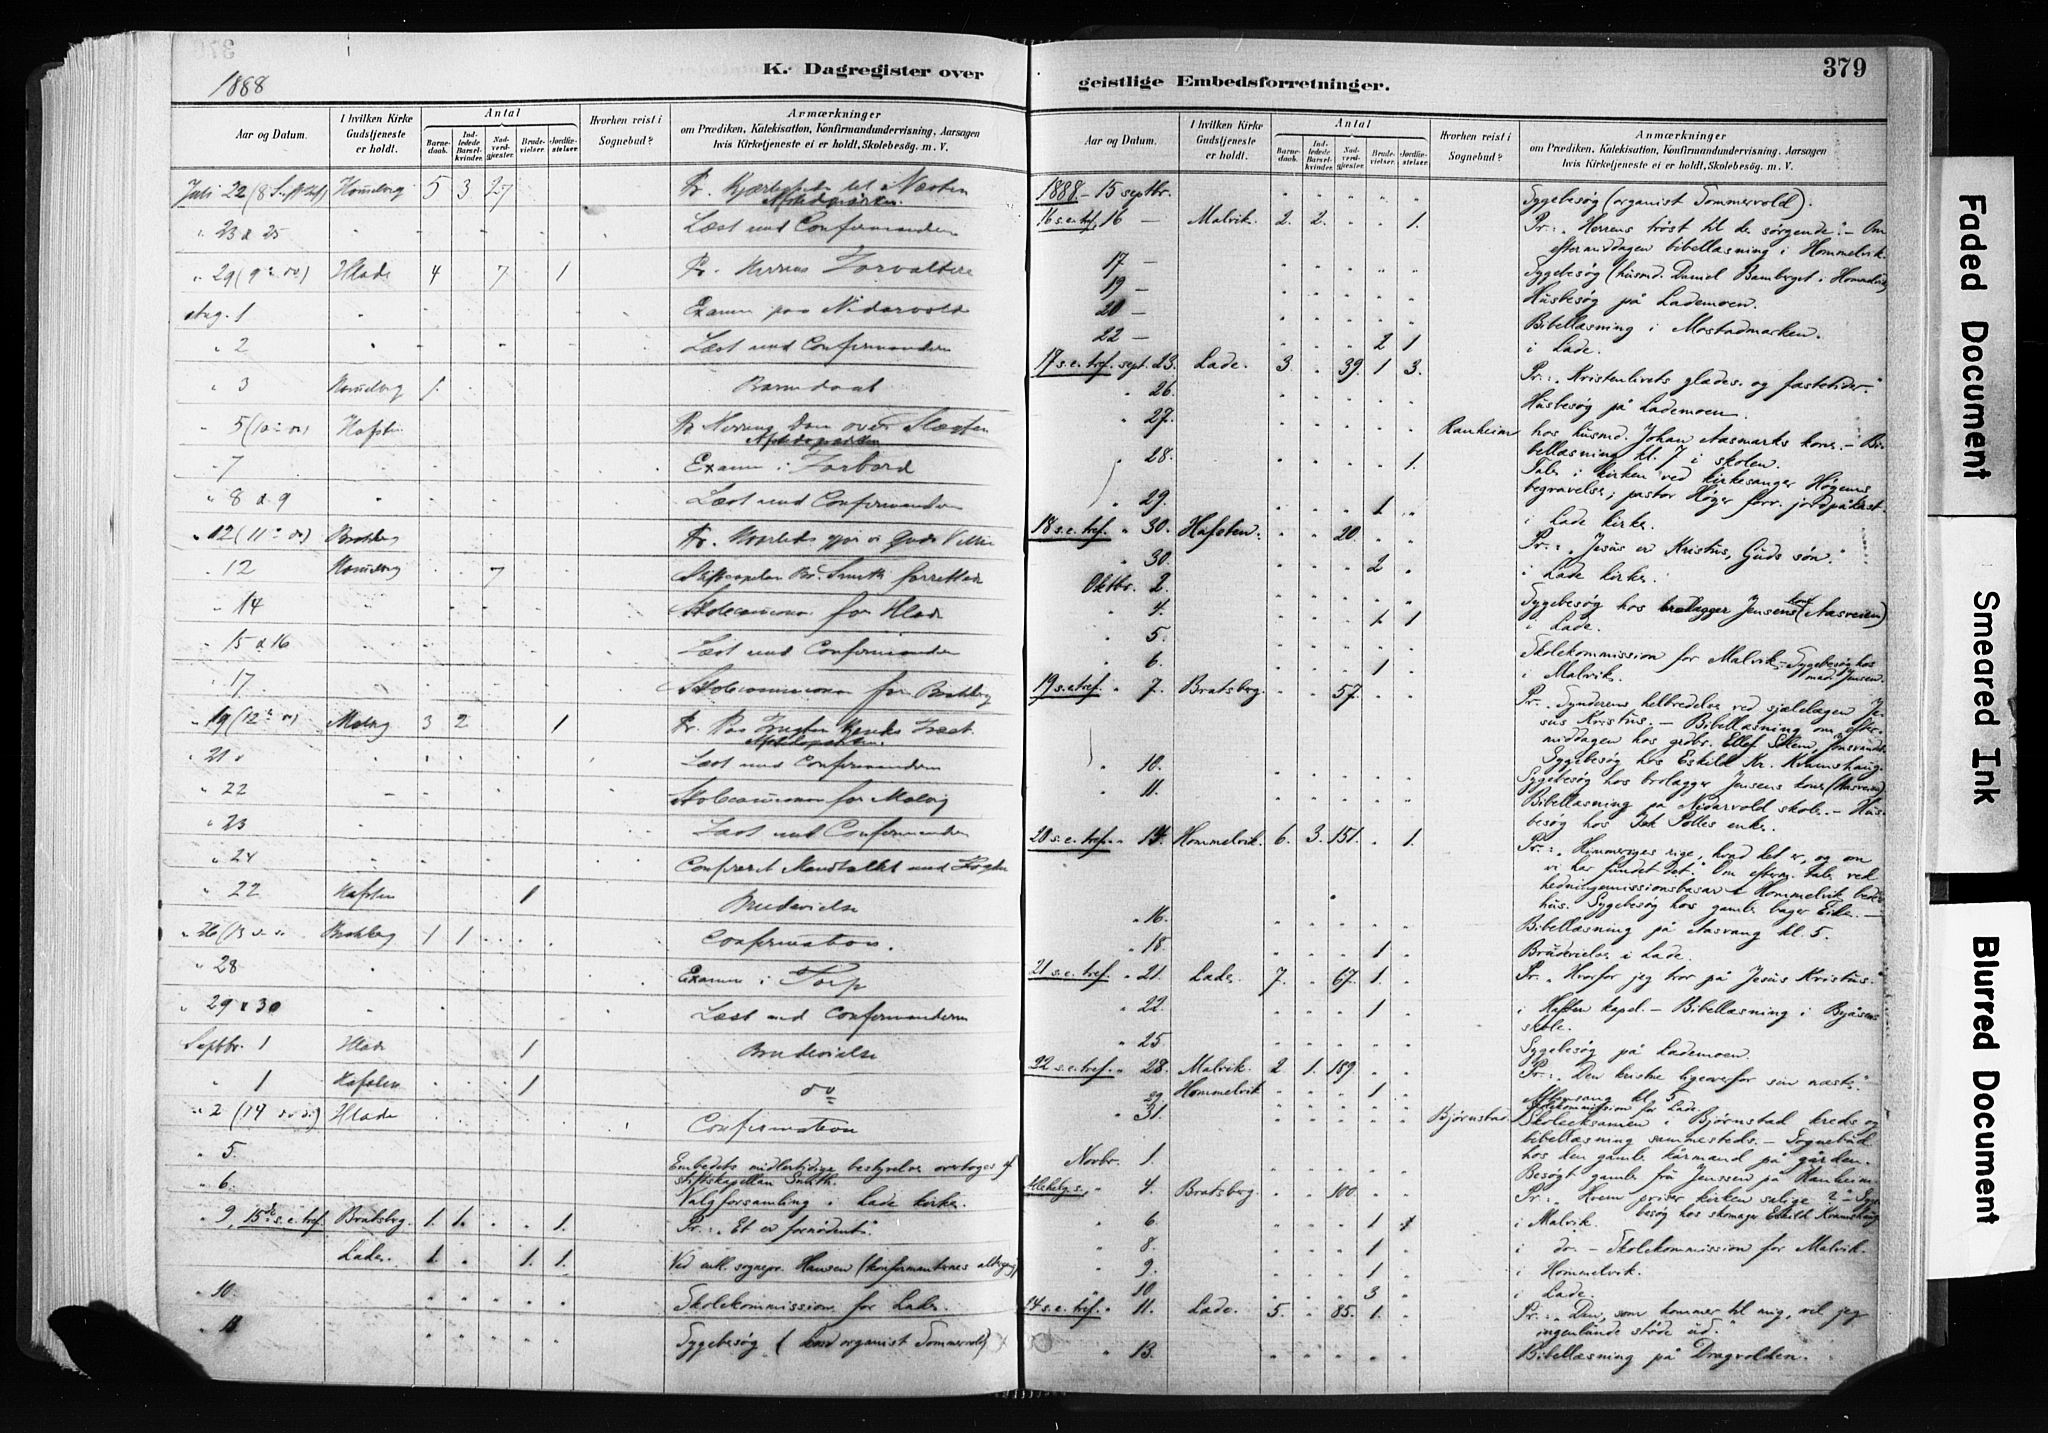 K. Dagregister over
1888
Aar og Datum.
I hvilken Kirke Gudstjeneste er holdt.
Antal
Barne-daab.
Ind-ledede Barsel-kvinder.
Nad-verd-gjester.
Brude-vielser.
Jordfæs-telser.
Hvorhen reist i Sognebud?
Anmærkninger
om Prædiken, Katekisation, Konfirmandundervisning, Aarsagen
hvis Kirketjeneste ei er holdt, Skolebesøg. m. V.
Juli 22 (8 5 3 27 Pr. Kjærlighed til Næsten
" 23 & 25 Læst med Confirmanden
" 29 (9 Hlade 4 7 1 Pr. Herrens Forvaltere
Aug. 1 Examen paa Nidarvold
" 2 Læst med Confirmanden
" 3 1 Barnedaab
" 5 (10 Hafsten Pr. Herrens Dom over
" 7 Examen i Forbord
" 8 & 9 Læst med Confirmanden
" 12 (11 Bratsberg Pr. Hvorledes gjør vi Guds Villie
" 12 7 Stiftscapelan Br. Smith forrettede
" 14 Skolecommission for Hlade
" 15 & 16 Læst med Confirmanden
" 17 Skolecommission for Bratsberg
" 19 (12 Malvig 3 2 1 Pr. Paa Frugten kjendes Træet
" 21 Læst med Confirmanden
" 22 Skolecommission for Malvig
" 23 Læst med Confirmanden
" 24 Confereret Mandtallet med
" 22 Hafsten 1 Brudevielse
" 26 (13 Bratsberg 1 1 Confirmation.
" 28 Examen i Torp
" 29 & 30 Læst med Confirmanden
Septbr. 1 Hlade 1 Brudevielse
" 1 Hafsten 1 do
" 2 (14 Hlade Confirmation
" 5. Embedets midlertidige bestyrelse overtoges af
stiftskapellan Smith.
" 6. Valgforsamling i Lade kirke.
" 9, 15de s. e. tref. Bratsberg. 1. 1. 1. Pr.: "Et er fornødent".
Lade. 1. 1. 1. Ved sognepr. Hansen (konfirmanternes altergang)
" 10. Skolekommission for Lade.
" 11. Sygebesøg ( organist Sommervold)
geistlige Embedsforretninger.
379
Aar og Datum.
I hvilken Kirke Gudstjeneste er holdt.
Antal
Barne-daab.
Ind-ledede Barsel-kvinder.
Nad-verd-gjester.
Brude-vielser.
Jordfæs-telser.
Hvorhen reist i Sognebud?
Anmærkninger
om Prædiken, Katekisation, Konfirmandundervisning, Aarsagen
hvis Kirketjeneste ei er holdt, Skolebesøg. m. V.
1888 – 15 septbr. Sygebesøg (organist Sommervold).
16 s. e. tref. 16 – Malvik. 2. 2. 1. Pr.: "Herrens trøst til de sørgende". – Om
eftermiddagen bibellæsning i Hommelvik.
17 – Sygebesøg (husmd. Daniel Bamberget i Hommelvik)
19 – Husbesøg på Lademoen.
20 – Bibellæsning i Mostadmarken.
22 – 2 1 i Lade.
17 s. e. tref. sept. 23. Lade. 3. 39. 1 3. Pr.: "Kristenlivets glædes- og fastetider."
" 26. Husbesøg på Lademoen.
" 27. Ranheim hos husmd. Johan Aasmarks kone. – Bi-
bellæsning kl. 7 i skolen.
" 28. 1. Tale i kirken ved kirkesanger Høgems
begravelse; pastor Høyer forr. jordpåkast.
" 29. 1 i Lade kirke.
18 s. e. tref. " 30. Hafsten. 20. Pr.: "Jesus er Kristus, Guds søn".
" 30. 2 i Lade kirke.
Oktbr. 2. Sygebesøg hos brolægger Jensens kone (Aasveien)
" 4. 1. 1 i Lade.
" 5. Skolekommission for Malvik. – Sygebesøg hos
mad. Jensen.
" 6. 1 i Malvik.
19 s. e. tref. " 7. Bratsberg. 57. Pr. "Synderens helbredelse ved sjælelægen Je-
sus Kristus". – Bibellæsning om efter-
middagen hos grdbr. Ellef
" 10. Sygebesøg hos Eskild Kr. Kramshaug.
" 11. Sygebesøg hos brolægger Jensens kone (Aasveien).
Bibellæsning på Nidarvold skole. – Hus-
besøg hos enke.
20 s. e. tref. " 14. Hommelvik. 6. 3. 151. 1. Pr.: "Himmeriges rige, hvad det er, og om
vi har fundet det." Om efterm. tale ved
hedningemissionsbasar i Hommelvik bede-
hus. Sygebesøg hos gamle bager Eike. –
" 16. Bibellæsning på Aasvang kl. 5.
" 18. 1 Brudevielse i Lade.
21 s. e. tref. " 21. Lade. 7. 67. 1. Pr. "Hvorfor jeg tror på Jesus Kristus".
" 22. 1 i Hafsten kapel. – Bibellæsning i Byåsens
skole.
" 25. Sygebesøg på Lademoen.
22 s. e. tref. " 28. Malvik. 2 1. 189 Pr.: "Den kristne ligeoverfor sin næste".
29 Hommelvik 1 Aftensang kl. 5
Skolekommission for Lade.
" 31. Bjørnstad. Skoleeksamen i Bjørnstad kreds og
bibellæsning sammesteds. – Sognebud
hos den gamle kårmand på gården.
Novbr. 1. Besøgt gamle fru Jenssen på Ranheim.
Allehelg. s. " 4. Bratsberg. 100. Pr. "Hvem priser kirken salige?" – Syge-
besøg hos skomager Eskild Kramshaug
" 6. 1 1 i Malvik.
" 8. 1 i do. – Skolekommission for Malvik.
" 9. 1 i Hommelvik.
" 10. 3 i Lade.
24 s. e. tref. " 11. Lade. 5 85. 1. Pr.: "Den, som kommer til mig, vil jeg
ingenlunde støde ud."
" 13. Bibellæsning på Dragvolden.
Faded Document
Smeared Ink
Blurred Document